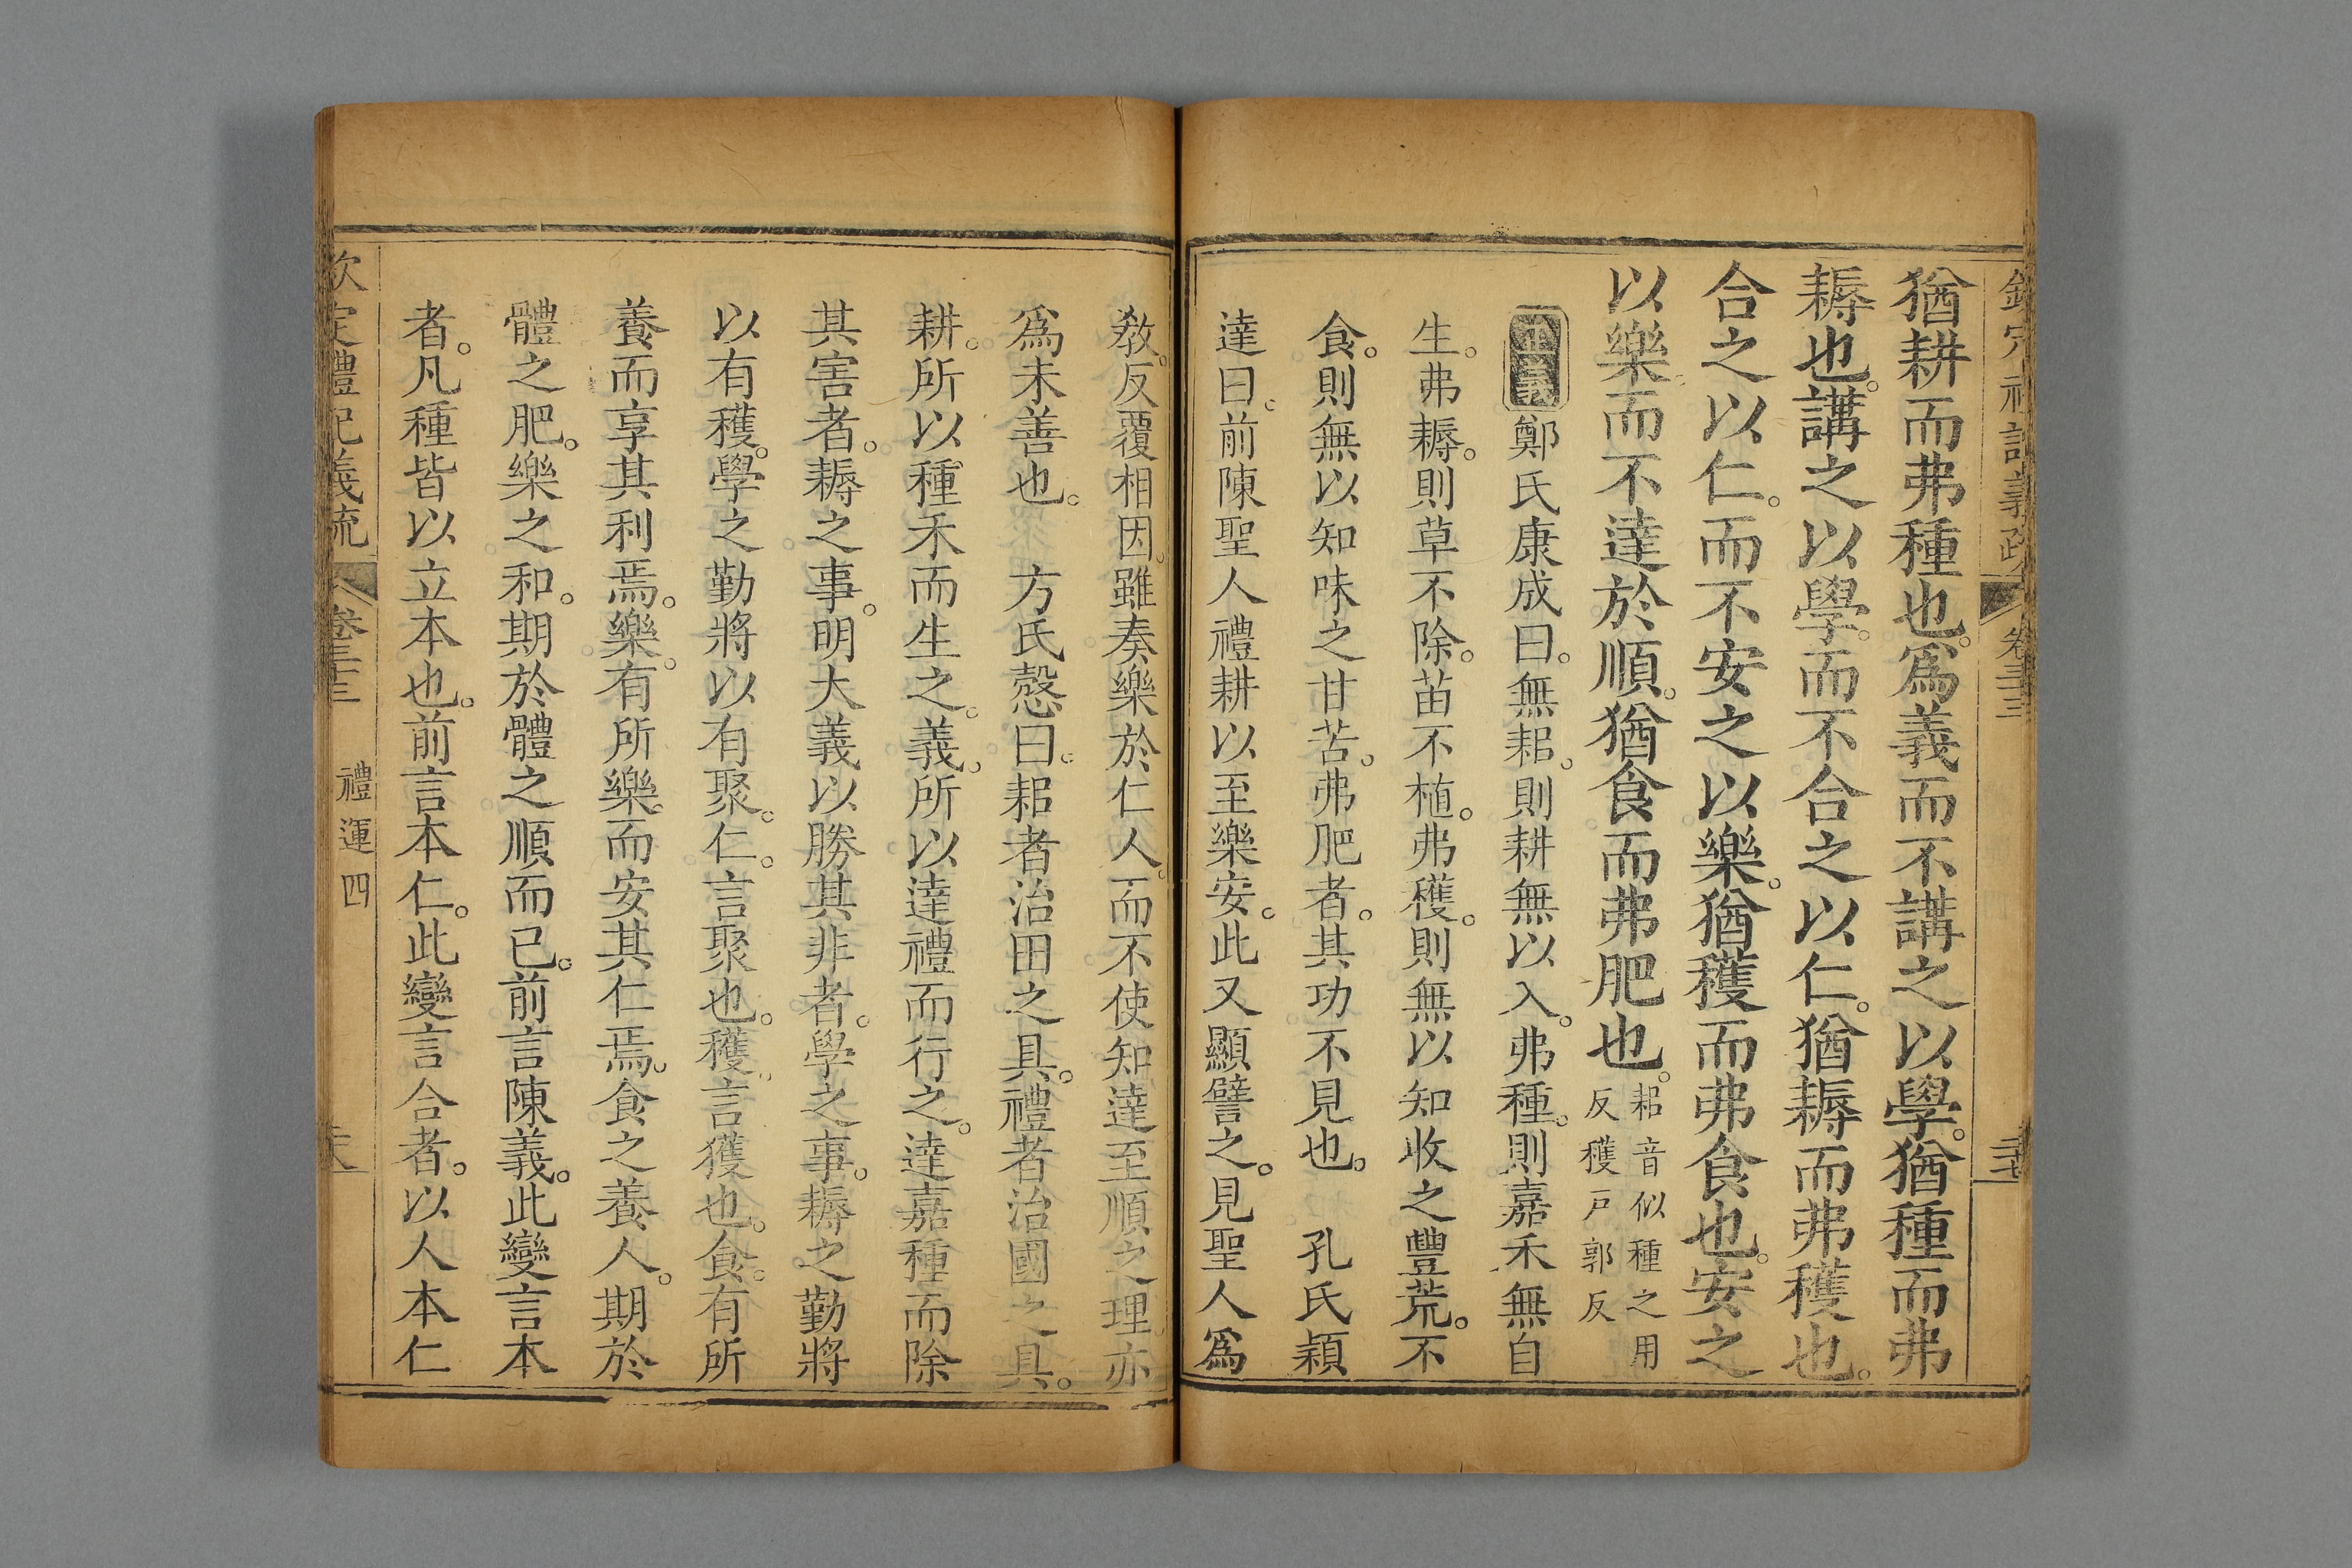 猶耕而弗種也。爲義而不講之以學。猶種而弗
耨也。講之以學。而不合之以仁。猶耨而弗穫也。
合之以仁。而不安之以樂。猶穫而弗食也。安之
以樂而不達於順。猶食而弗肥也。耜音似種之用
反穫戸郭反
正義鄭氏康成曰。無耜。則耕無以入。弗種。則嘉禾無自
生。弗耨。則草不除。苗不植。弗穫。則無以知收之豐荒。不
食。則無以知味之甘苦。弗肥者。其功不見也。 孔氏穎
達曰。前陳聖人禮耕以至樂安。此又顯譬之。見聖人爲
教。反覆相因。雖奏樂於仁人。而不使知達至順之理。亦
爲未善也。 方氏慤曰。耜者治田之具。禮者治國之具。
耕。所以種禾而生之。義。所以達禮而行之。達嘉種而除
其害者。耨之事。明大義以勝其非者。學之事。耨之勤將
以有穫。學之勤將以有聚。仁。言聚也。穫。言獲也。食。有所
養而享其利焉。樂。有所樂而安其仁焉。食之養人。期於
體之肥。樂之和。期於體之順而已。前言陳義。此變言本
者。凡種皆以立本也。前言本仁。此變言合者。以人本仁
欽定禮記義疏 卷三十三 禮運四